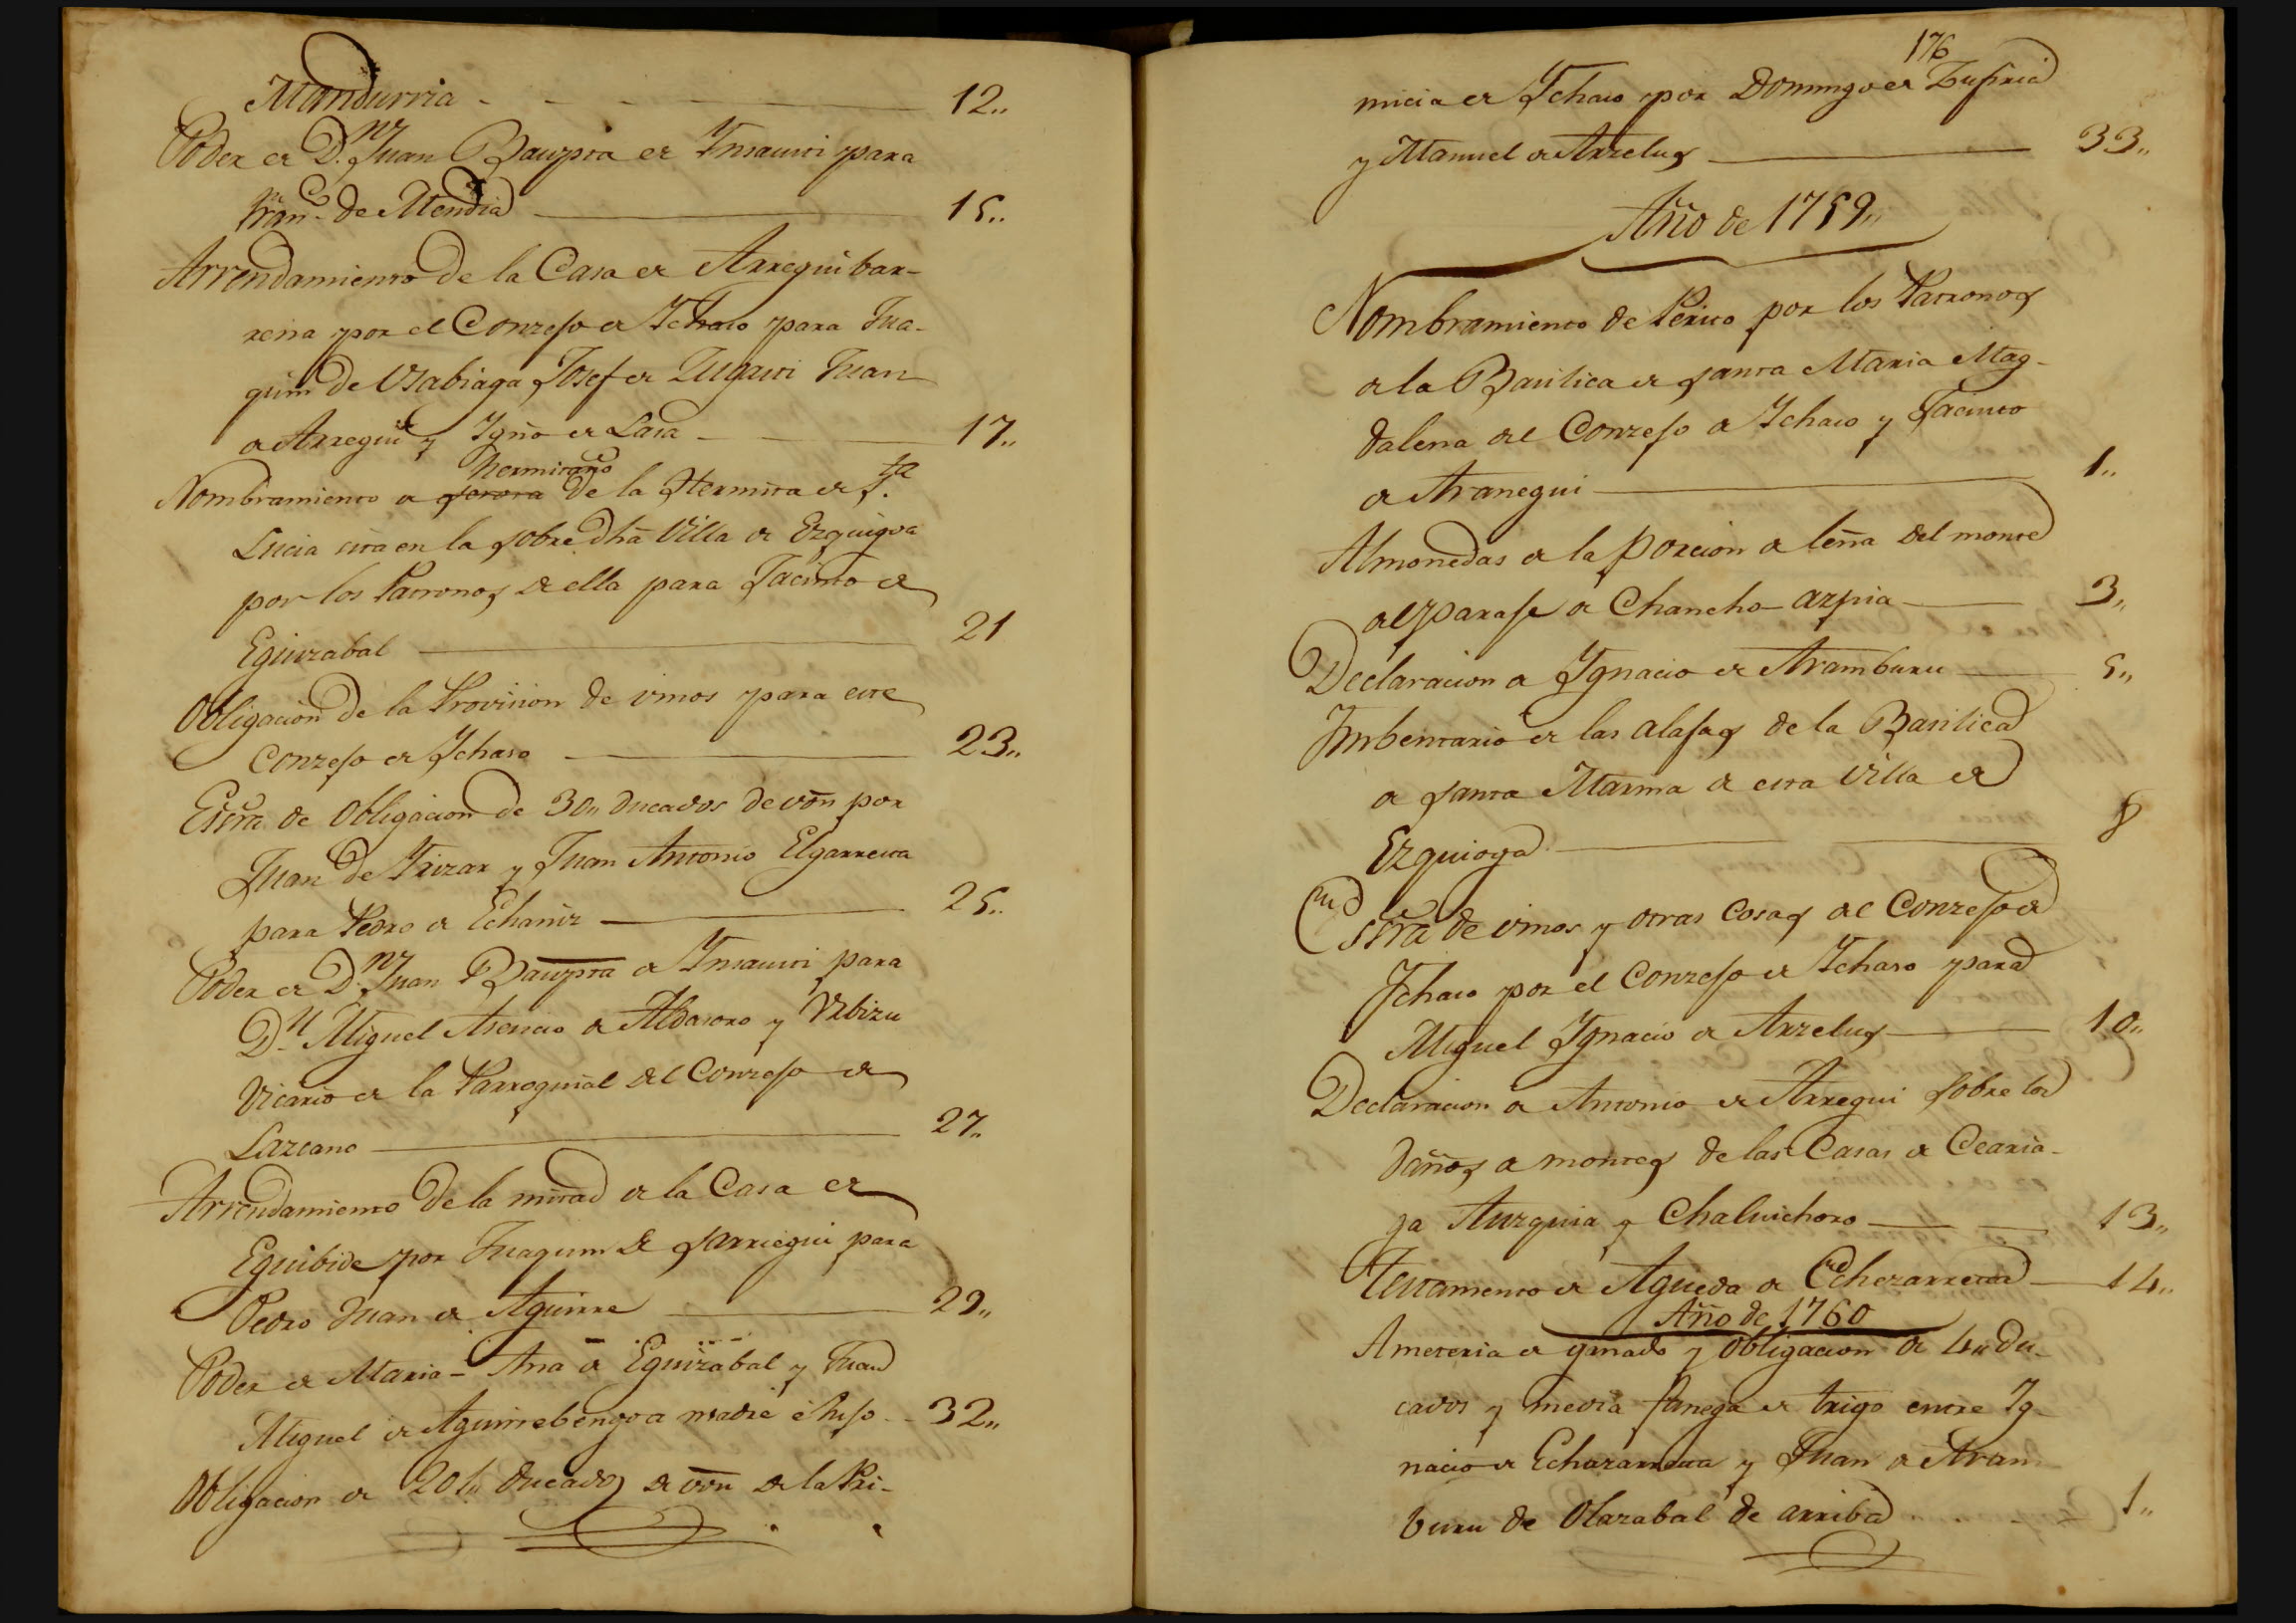 Mandurria - - - - - 12,,
Poder de D.ⁿ Juan Baup̄ta de Insausti para
Fran.co de Mendia 15..
Arrendamiento de la Casa de Arreguibar-
rena por el Conzejo de Ichaso para Jua-
quin de Usabiaga Josef de Zugasti Juan
de Arregui y Ign̄o de Lasa 17,,
Nombramiento de serora hermitaño de la Hermita de S.ta
Lucia sita en la sobre dh̄a Villa de Ezquioga
por los Patronos de ella para Jacinto de
Eguizabal 21
Obligacion de la Provision de vinos para este
Conzejo de Ichaso 23,,
Ess̄ra de Obligacion de 30,, ducados de vōn por
Juan de Irizar y Juan Antonio Elgarresta
para Pedro de Echaniz 25..
Poder de D.ⁿ Juan Baup̄ta de Insausti para
D.ⁿ Miguel Asencio de Aldasoro y Urbizu
Vicario de la Parroquial del Conzejo de
Lazcano 27,,
Arrendamiento de la mitad de la Casa de
Eguibide por Juaquin de Sarriegui para
Pedro Juan de Aguirre 29,,
Poder de Maria- Ana de Eguizabal y Juan
Miguel de Aguirrebengoa madre è hijo - - 32,,
Obligacion de 204 ducados de vōn de la Pri-
176
micia de Ichaso por Domingo de Zufiria
y Manuel de Arzelus 33,,
Año de 1759,,
Nombramiento de Perito por los Patronos
de la Basilica de Santa Maria Mag-
dalena del Conzejo de Ichaso y Jacinto
de Aranegui 1,,
Almonedas de la porcion de leña del monte
del paraje de Chancho-azpia 3,,
Declaracion de Ignacio de Aramburu 5,,
Imbentario de las alajas de la Basilica
de Santa Marina de esta Villa de
Ezquioga 8
Ess̄ra de vinos y otras cosas del Conzejo de
Ichaso por el Conzejo de Ichaso para
Miguel Ignacio de Arzelus 10,,
Declaracion de Antonio de Arregui sobre los
daños de montes de las Casas de Cearia-
ga Aurquia y Chaluichoro 13,,
Testamento de Agueda de Echezarreta 14,,
Año de 1760
Ameteria de ganado y Obligacion de 4,, du-
cados y media fanega de trigo entre Ig-
nacio de Echezarreta y Juan de Aram-
buru de Olazabal de arriba 1,,